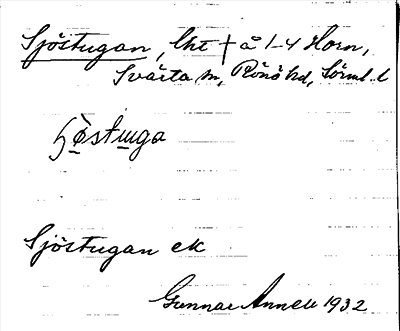 Sjöstugan, lht † å 1-4 Horn,
Svärta sn, Rönö hd, Sörml. l
Sjöstugan ek
Gunnar Annell 1932